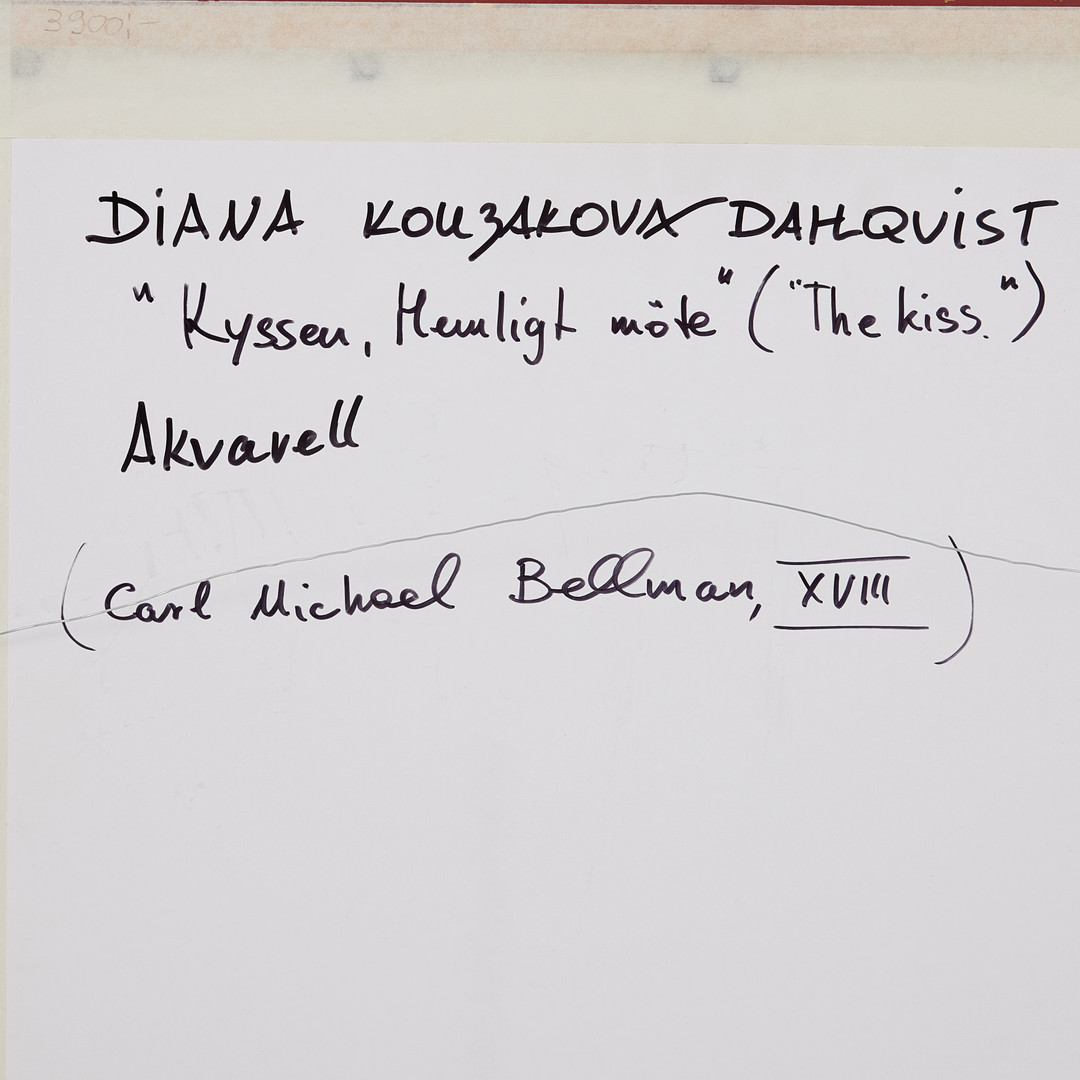 3900:-
DiANA KOUZAKOVA DAHLQUiST
"Kyssen, Hemligt möte" ("The kiss.")
Akvarell
(Carl Michael Bellman, XVIII)